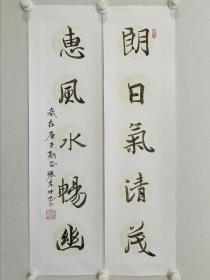 朗日氣清茂
惠風水暢幽
歲在庚子新正